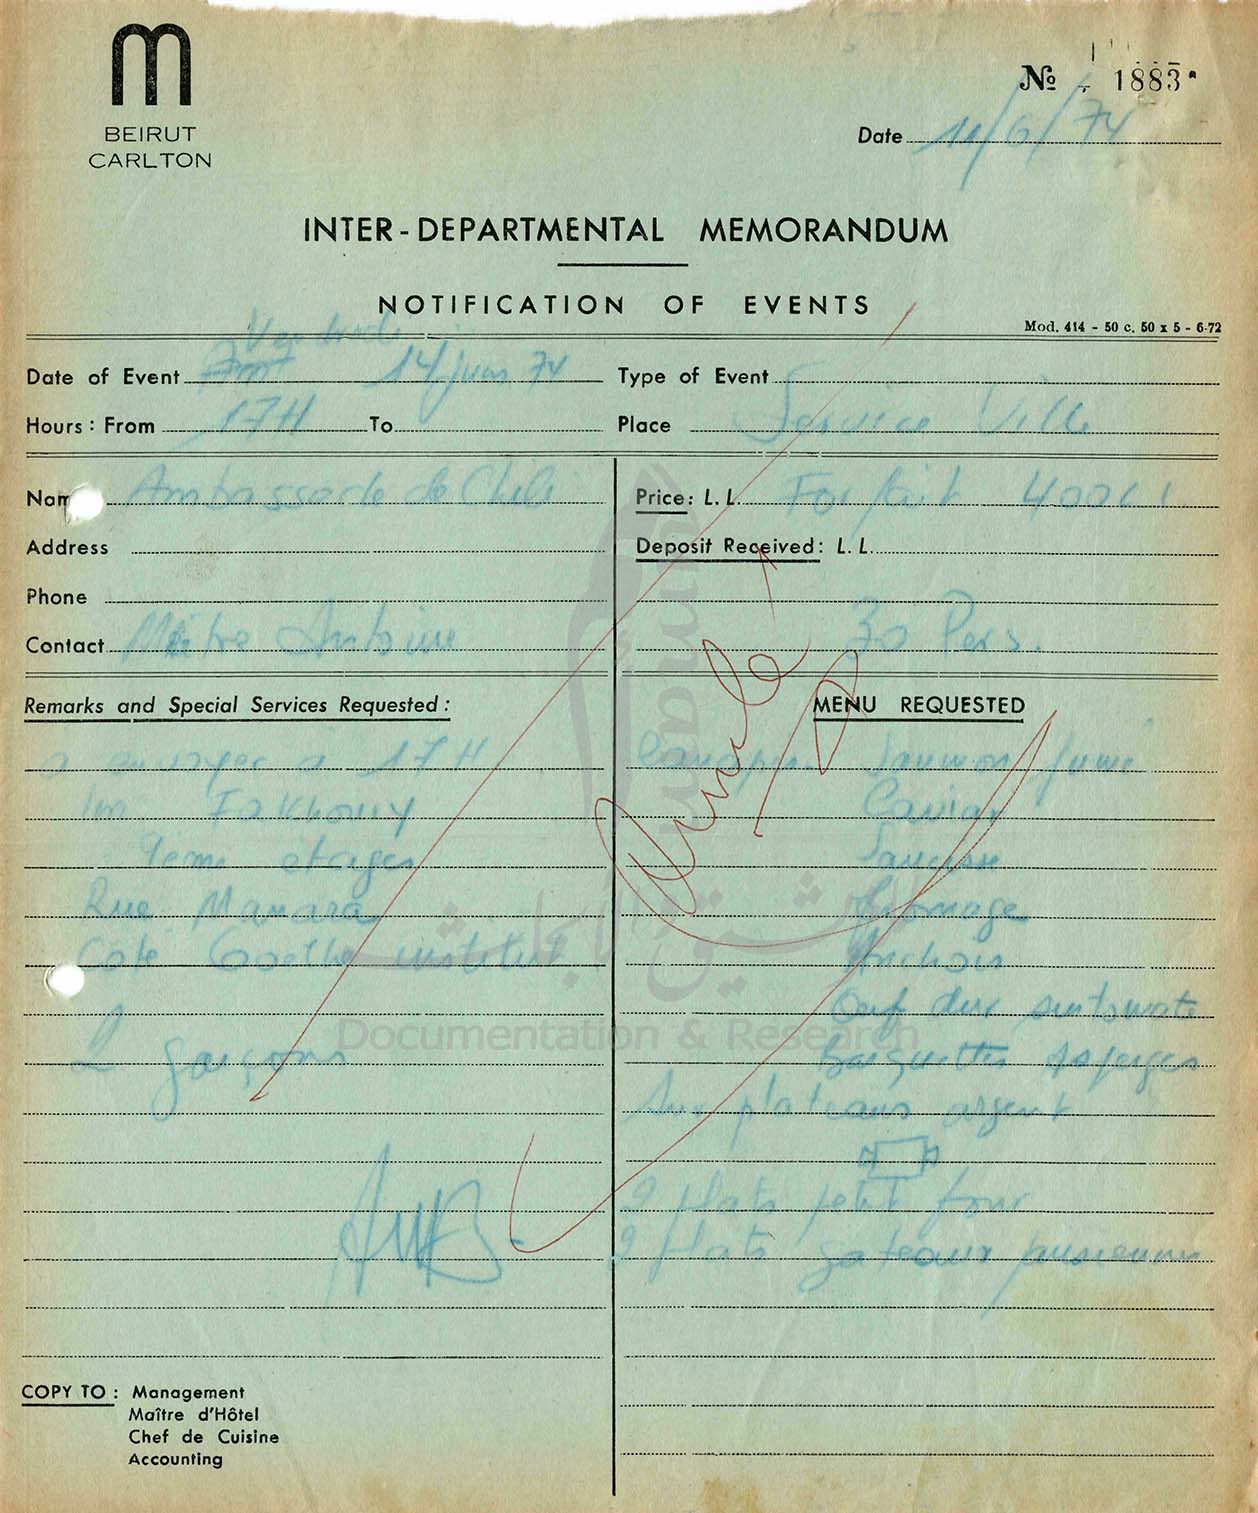 m
BEIRUT
CARLTON
№ 1883
Date 11/6/74
INTER-DEPARTMENTAL MEMORANDUM
NOTIFICATION OF EVENTS
Mod. 414 - 50 c. 50 x 5 - 6-72
Vendredi
Date of Event 14 juin 74 Type of Event
Hours: From 17H To Place Service Ville
Ambassade de Chili Price: L. L. Forfait 400 LL
Address Deposit Received: L. L.
Phone
Contact Maître Antoine 30 Pers.
Remarks and Special Services Requested: MENU REQUESTED
a envoyer à 17H Canapés Saumon fumé
Im Fakhoury Caviar
9eme étages Saucisse
Rue Manara fromage
Cote Goethe institut Anchois
Oeuf dur sur tomate
2 garçons Barquettes Asperges
Sur plateaux argent
2 plats petit four
2 plats gateaux
Annulé
umam
Documentation & Research
COPY TO: Management
Maître d'Hôtel
Chef de Cuisine
Accounting